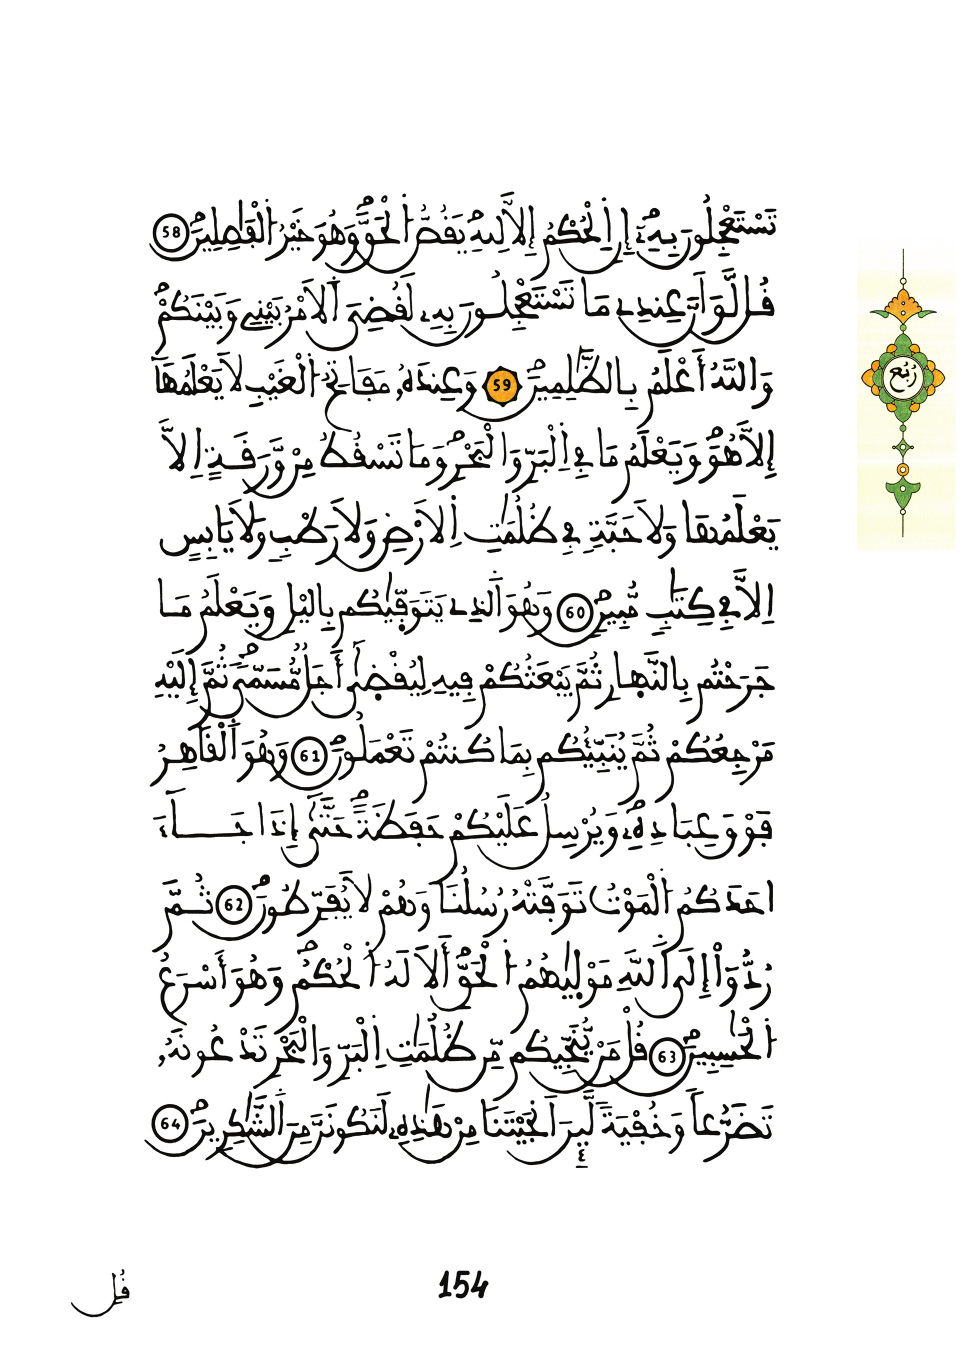 تَسْتَعْجِلُونَ بِهِۦٓۖ إِنِ اِ۬لْحُكْمُ إِلَّا لِلهِ يَقُصُّ اُ۬لْحَقَّ وَهُوَ خَيْرُ اُ۬لْفَٰصِلِينَ 58
قُل لَّوَ اَنَّ عِندِے مَا تَسْتَعْجِلُونَ بِهِۦ لَقُضِيَ اَ۬لَامْرُ بَيْنِے وَبَيْنَكُمْ
وَاللَّهُ أَعْلَمُ بِالظَّٰلِمِينَ 59 وَعِندَهُۥ مَفَاتِحُ اُ۬لْغَيْبِ لَا يَعْلَمُهَآ
إِلَّا هُوَ وَيَعْلَمُ مَا فِے اِ۬لْبَرِّ وَالْبَحْرِ وَمَا تَسْقُطُ مِنْ وَّرَقَةٍ اِلَّا
يَعْلَمُهَا وَلَا حَبَّةٖ فِے ظُلُمَٰتِ اِ۬لَارْضِ وَلَا رَطْبٖ وَلَا يَابِسٍ
اِلَّا فِے كِتَٰبٖ مُّبِينٖ 60 وَهُوَ اَ۬لذِے يَتَوَفَّيٰكُم بِاليْلِ وَيَعْلَمُ مَا
جَرَحْتُم بِالنَّهَارِ ثُمَّ يَبْعَثُكُمْ فِيهِ لِيُقْضَىٰٓ أَجَلٞ مُّسَمّىٗ ثُمَّ إِلَيْهِ
مَرْجِعُكُمْ ثُمَّ يُنَبِّئُكُم بِمَا كُنتُمْ تَعْمَلُونَ 61 وَهُوَ اَ۬لْقَاهِرُ
فَوْقَ عِبَادِهِۦ وَيُرْسِلُ عَلَيْكُمْ حَفَظَةً حَتَّىٰٓ إِذَا جَآءَ
احَدَكُمُ اُ۬لْمَوْتُ تَوَفَّتْهُ رُسُلُنَا وَهُمْ لَا يُفَرِّطُونَ 62 ثُمَّ
رُدُّوٓاْ إِلَى اَ۬للَّهِ مَوْلَيٰهُمُ اُ۬لْحَقِّ أَلَا لَهُ اُ۬لْحُكْمُ وَهُوَ أَسْرَعُ
اُ۬لْحَٰسِبِينَ 63 قُلْ مَنْ يُّنَجِّيكُم مِّن ظُلُمَٰتِ اِ۬لْبَرِّ وَالْبَحْرِ تَدْعُونَهُۥ
تَضَرُّعاٗ وَخُفْيَةٗ لَّئِنَ اَنجَيْتَنَا مِنْ هَٰذِهِۦ لَنَكُونَنَّ مِنَ اَ۬لشَّٰكِرِينَ 64
رُبُع
154
قُل